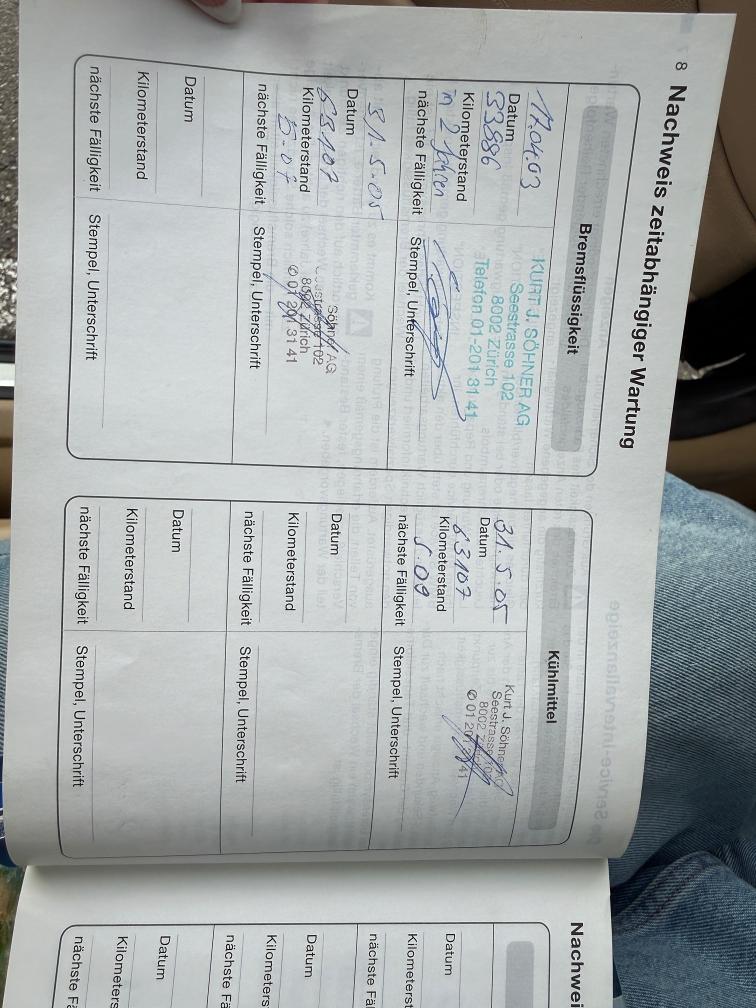 8 Nachweis zeitabhängiger Wartung
Bremsflüssigkeit
17.04.03
Datum
33886
Kilometerstand
in 2 Jahren
nächste Fälligkeit
KURT J. SÖHNER AG
Seestrasse 102
8002 Zürich
Telefon 01-201 31 41
Stempel, Unterschrift
31.5.05
Datum
63107
Kilometerstand
5.07
nächste Fälligkeit
Söhner AG
Seestrasse 102
8002 Zürich
✆ 01 201 31 41
Stempel, Unterschrift
Datum
Kilometerstand
nächste Fälligkeit
Stempel, Unterschrift
Kühlmittel
31.5.05
Datum
63107
Kilometerstand
5.09
nächste Fälligkeit
Kurt J. Söhner AG
Seestrasse 102
8002
✆ 01 201 41
Stempel, Unterschrift
Datum
Kilometerstand
nächste Fälligkeit
Stempel, Unterschrift
Datum
Kilometerstand
nächste Fälligkeit
Stempel, Unterschrift
Nachwei
Datum
Kilometerst
nächste Fäl
Datum
Kilometers
nächste Fä
Datum
Kilometers
nächste Fä
Service-Intervallanzeige